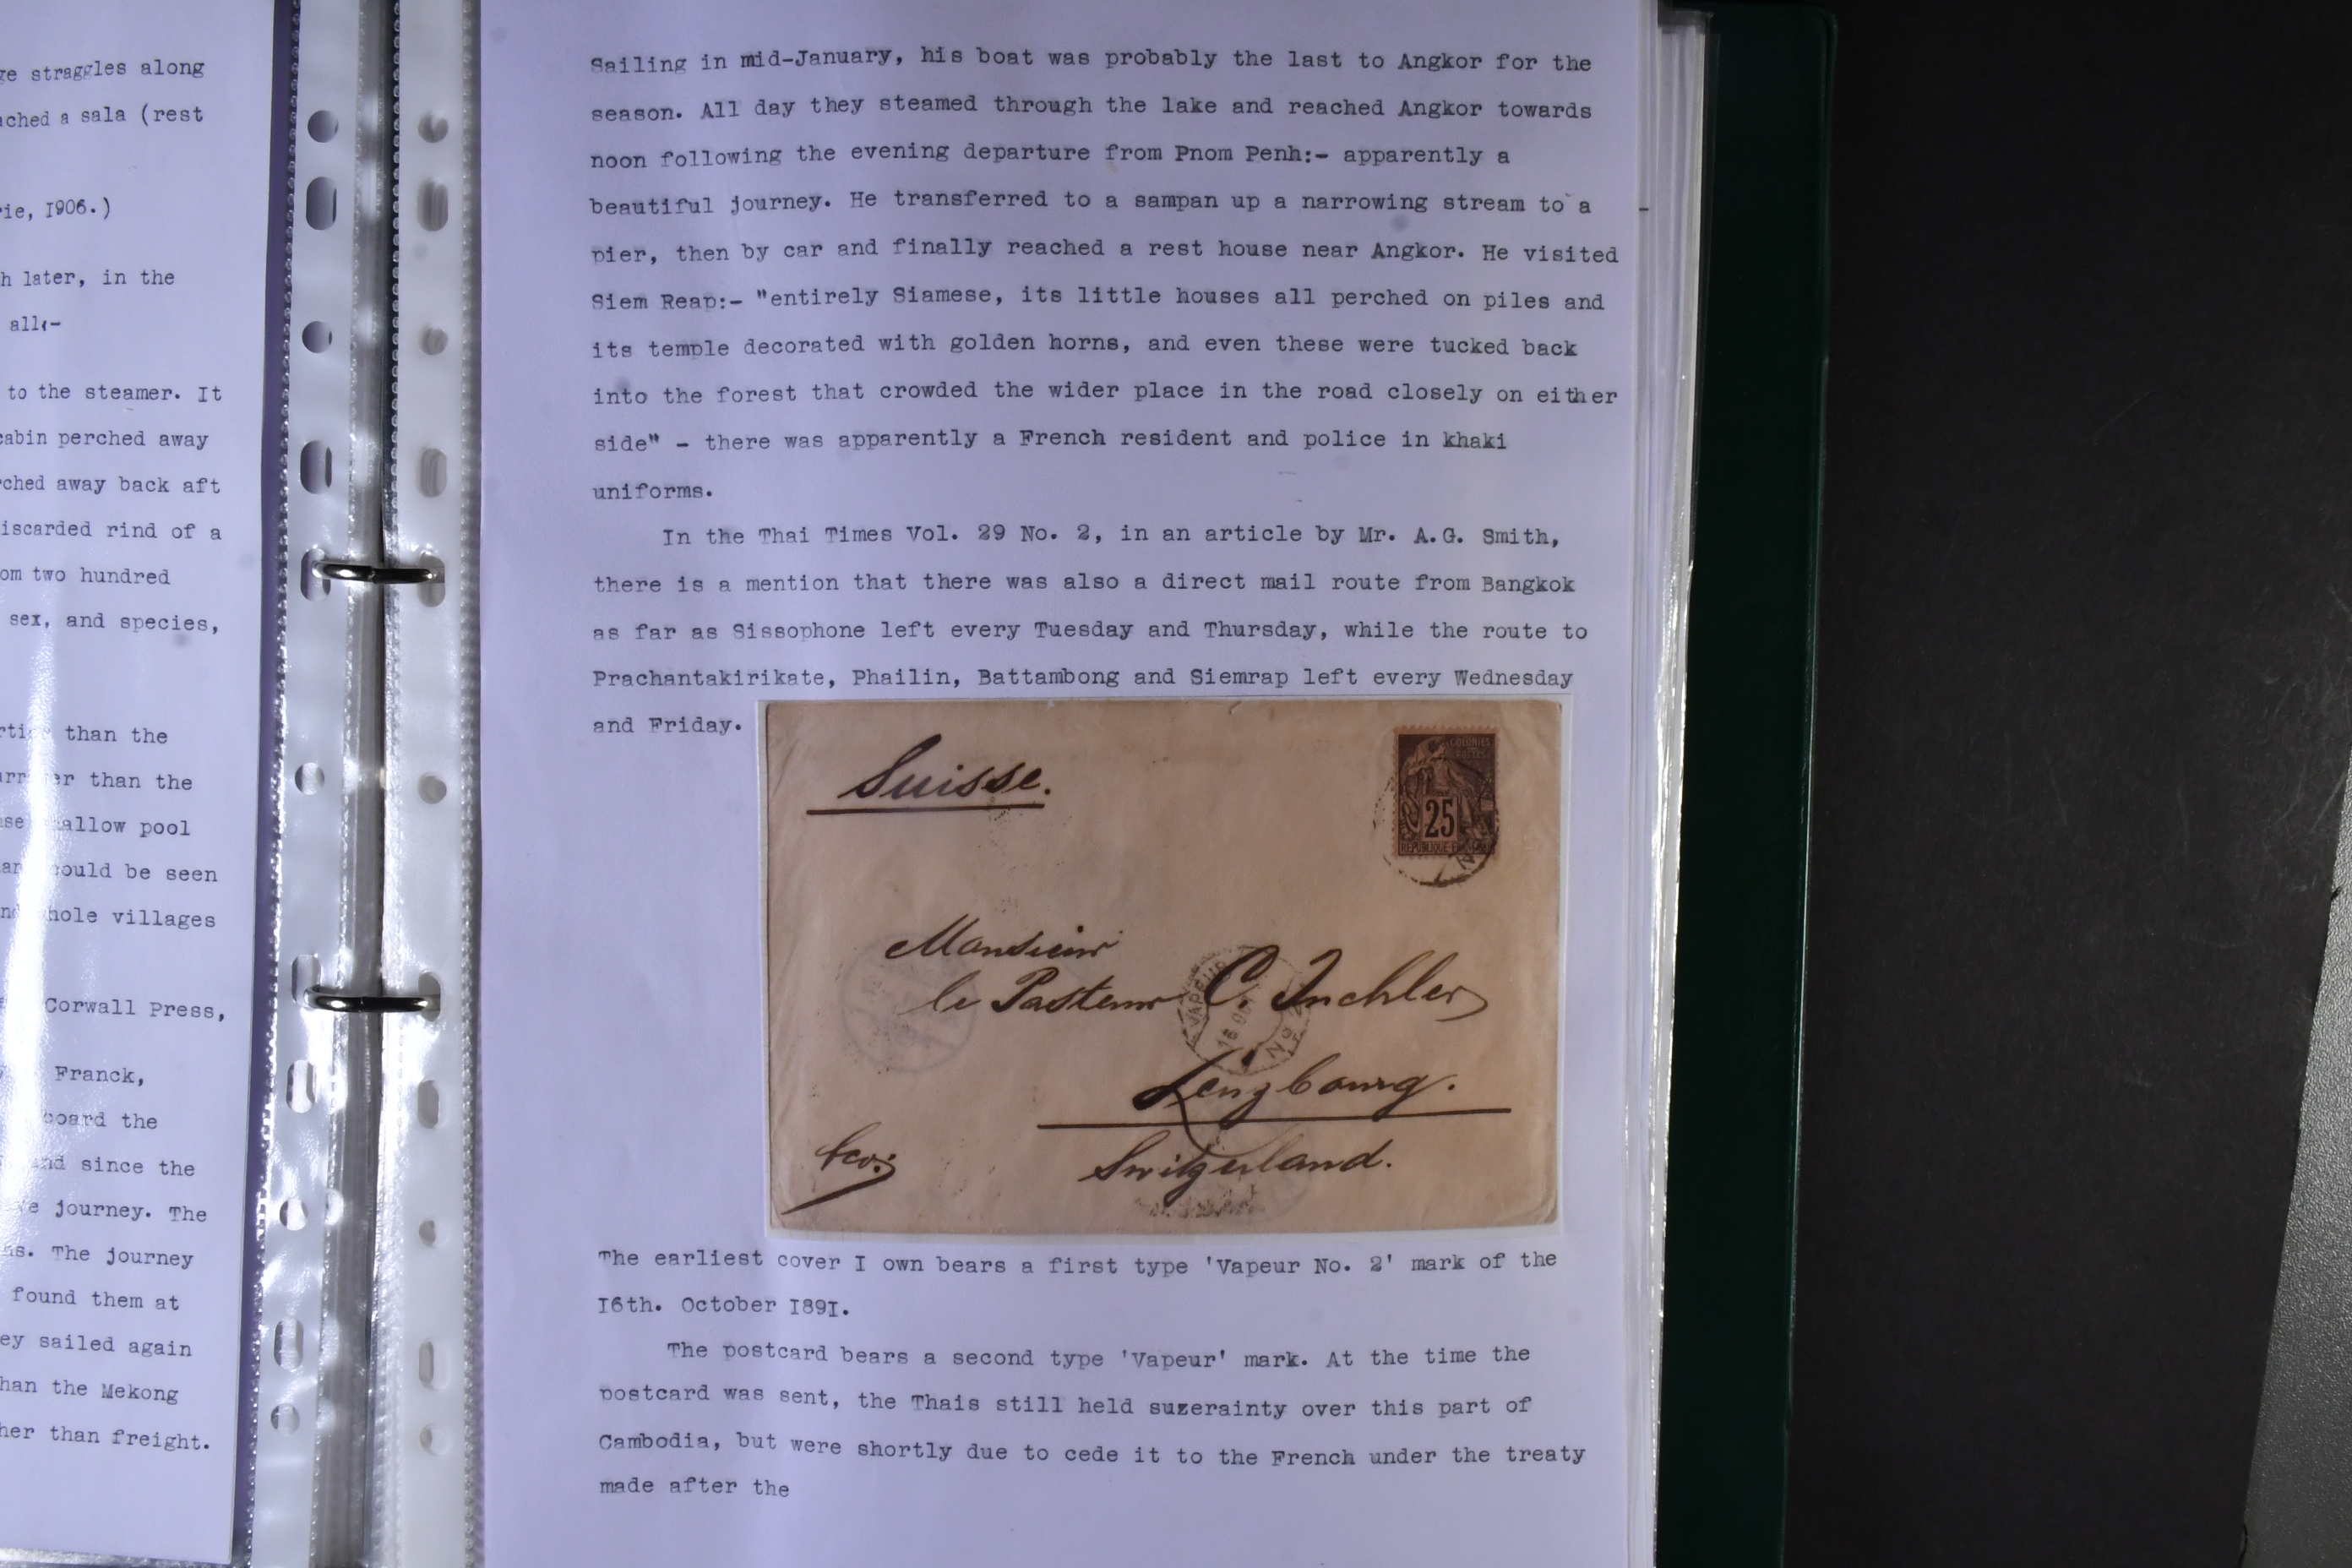 ge straggles along
ached a sala (rest
rie, 1906.)
h later, in the
all:-
to the steamer. It
cabin perched away
rched away back aft
iscarded rind of a
om two hundred
sex, and species,
than the
than the
allow pool
could be seen
hole villages
Corwall Press,
Franck,
board the
nd since the
journey. The
The journey
found them at
ey sailed again
han the Mekong
her than freight.
Sailing in mid-January, his boat was probably the last to Angkor for the
season. All day they steamed through the lake and reached Angkor towards
noon following the evening departure from Pnom Penh:- apparently a
beautiful journey. He transferred to a sampan up a narrowing stream to a
pier, then by car and finally reached a rest house near Angkor. He visited
Siem Reap:- "entirely Siamese, its little houses all perched on piles and
its temple decorated with golden horns, and even these were tucked back
into the forest that crowded the wider place in the road closely on either
side" - there was apparently a French resident and police in khaki
uniforms.
In the Thai Times Vol. 29 No. 2, in an article by Mr. A.G. Smith,
there is a mention that there was also a direct mail route from Bangkok
as far as Sissophone left every Tuesday and Thursday, while the route to
Prachantakirikate, Phailin, Battambong and Siemrap left every Wednesday
and Friday.
Suisse.
COLONIES
POSTES
25
REPUBLIQUE FRANCAISE
Monsieur
le Pasteur C.
VAPEUR
16 OCT
No 2
Lenzbourg.
Switzerland.
The earliest cover I own bears a first type 'Vapeur No. 2' mark of the
16th. October 1891.
The postcard bears a second type 'Vapeur' mark. At the time the
postcard was sent, the Thais still held suzerainty over this part of
Cambodia, but were shortly due to cede it to the French under the treaty
made after the